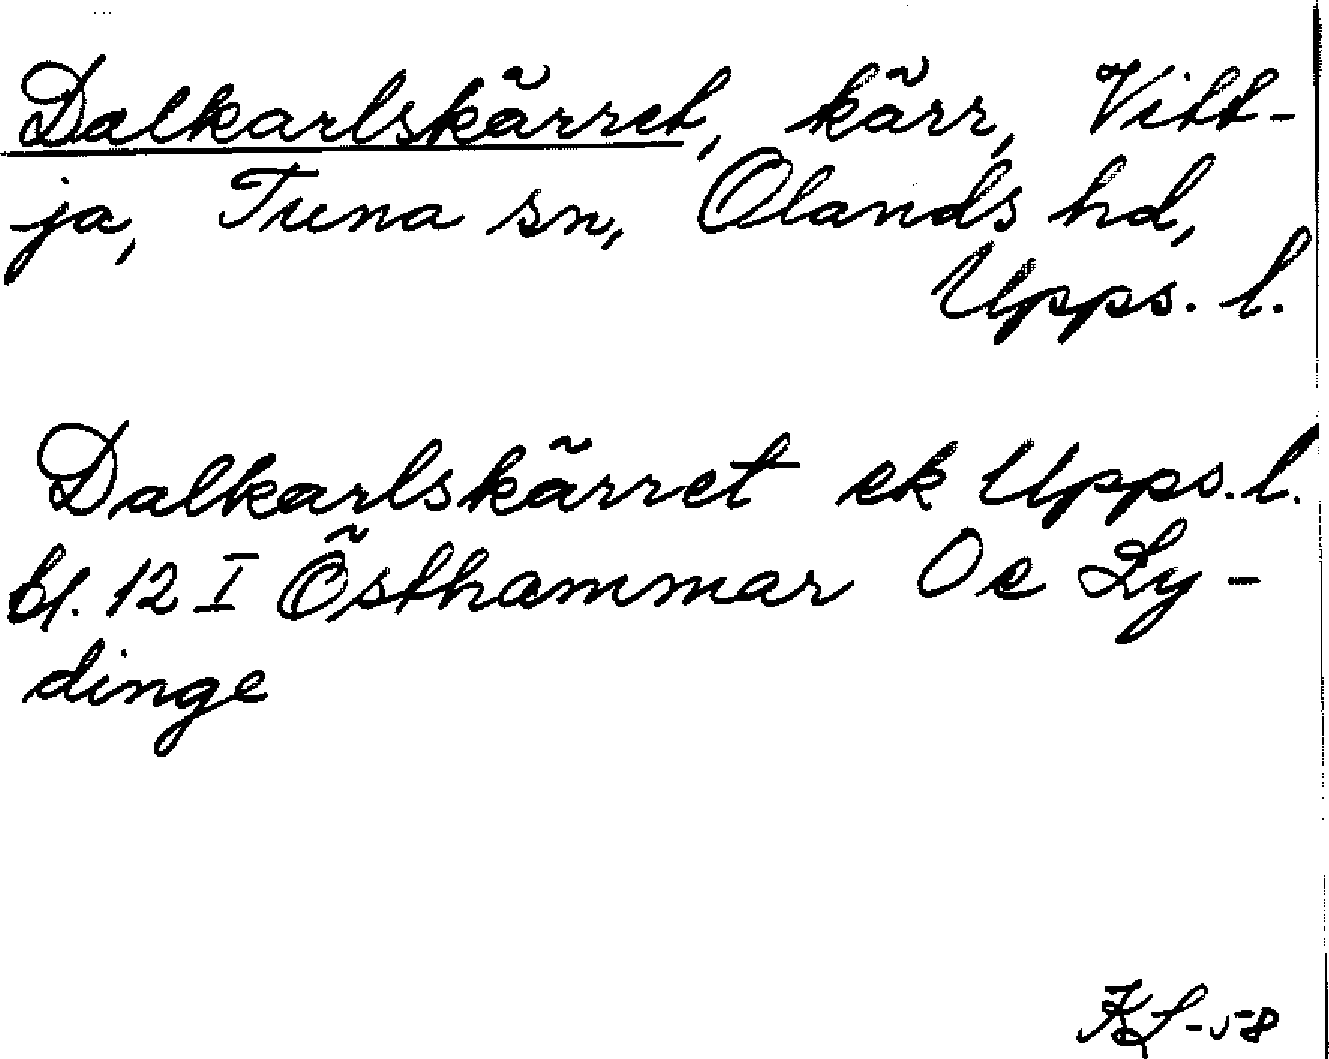 Dalkarlskärret, kärr, Vitt-
ja, Tuna sn, Olands hd,
Upps. l.
Dalkarlskärret ek Upps. l.
bl. 12 I Östhammar Oe Ly-
dinge
KL -58